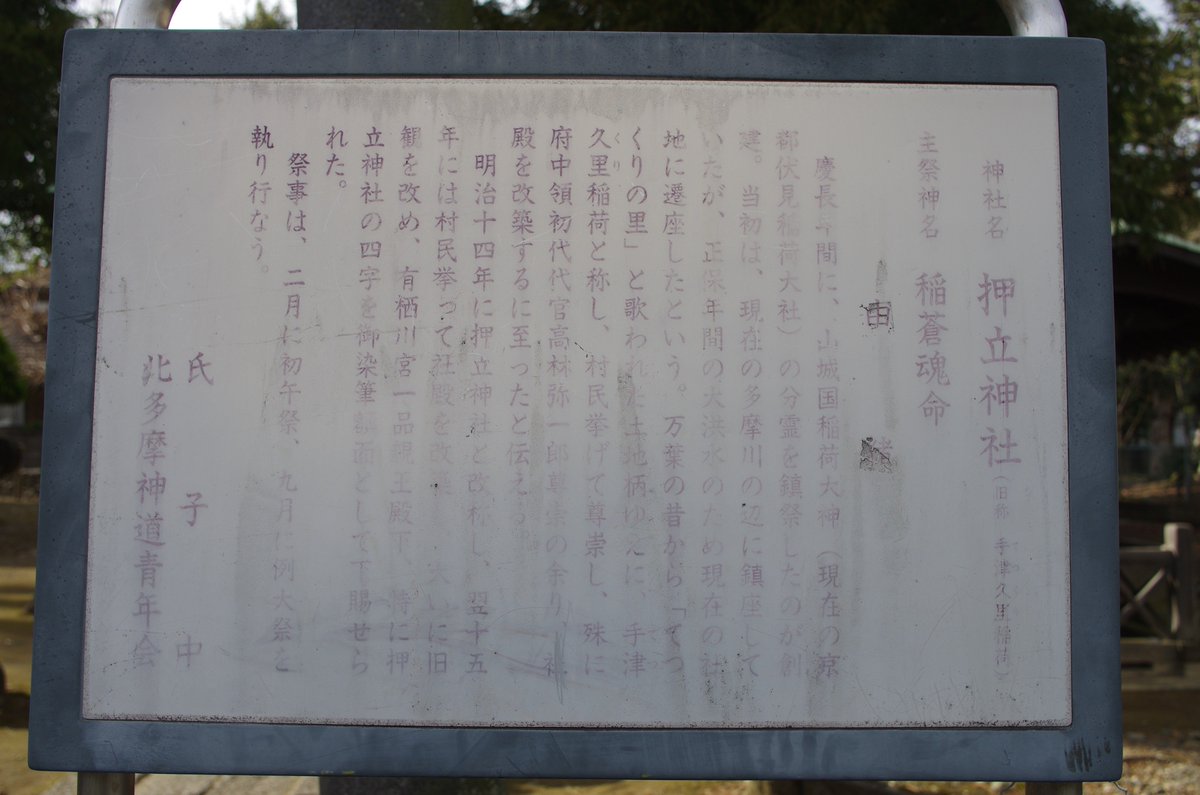 神社名 押立神社(旧称 手津久里稲荷)
主祭神名 稲蒼魂命
由緒
慶長年間に、山城国稲荷大神(現在の京
都伏見稲荷大社)の分霊を鎮祭したのが創
建。当初は、現在の多摩川の辺に鎮座して
いたが、正保年間の大洪水のため現在の社
地に遷座したという。万葉の昔から「てつ
くりの里」と歌われた土地柄ゆえに、手津
久里稲荷と称し、村民挙げて尊崇し、殊に
府中領初代代官高林弥一郎尊崇の余り、社
殿を改築するに至ったと伝える。
明治十四年に押立神社と改称し、翌十五
年には村民挙って社殿を改 大いに旧
観を改め、有栖川宮一品親王殿下、特に押
立神社の四字を御染筆額面として下賜せら
れた。
祭事は、二月に初午祭、九月に例大祭を
執り行なう。
氏子中
北多摩神道青年会